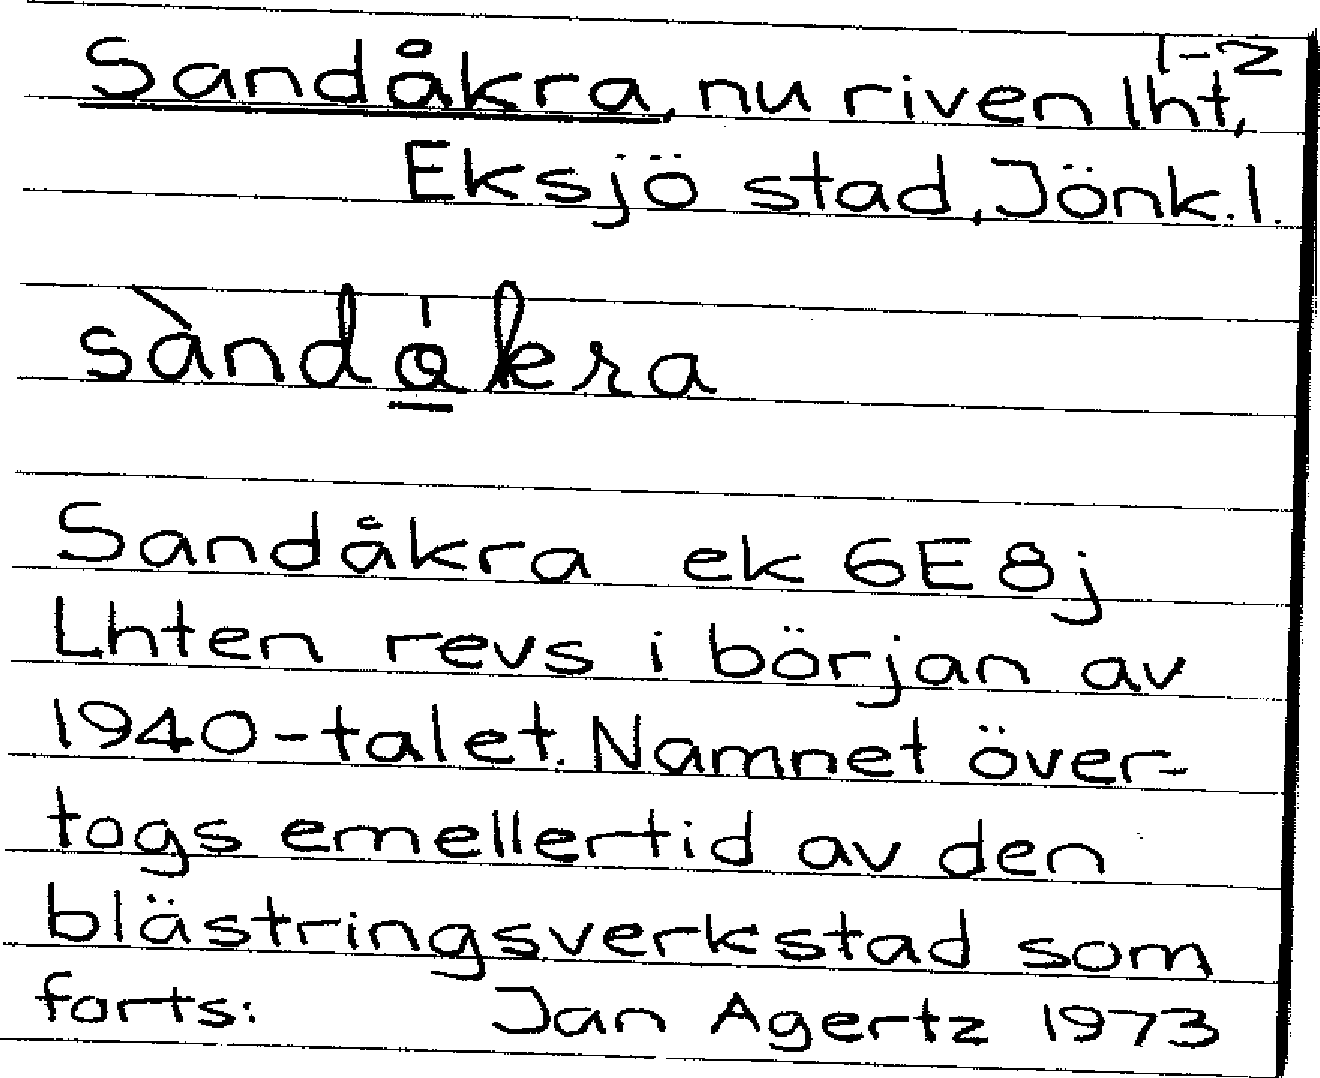 1-2
Sandåkra, nu riven lht,
Eksjö stad, Jönk.l.
sàndå̍kra
Sandåkra ek 6E8j
Lhten revs i början av
1940-talet. Namnet över-
togs emellertid av den
blästringsverkstad som
forts: Jan Agertz 1973